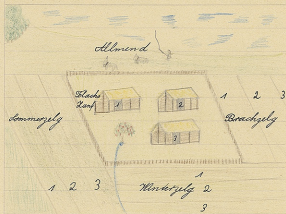 Allmend
Flachs
Hanf
1 2
3
1 2 3
Sommerzelg
Brachzelg
1 2 3
Winterzelg
1
2
3